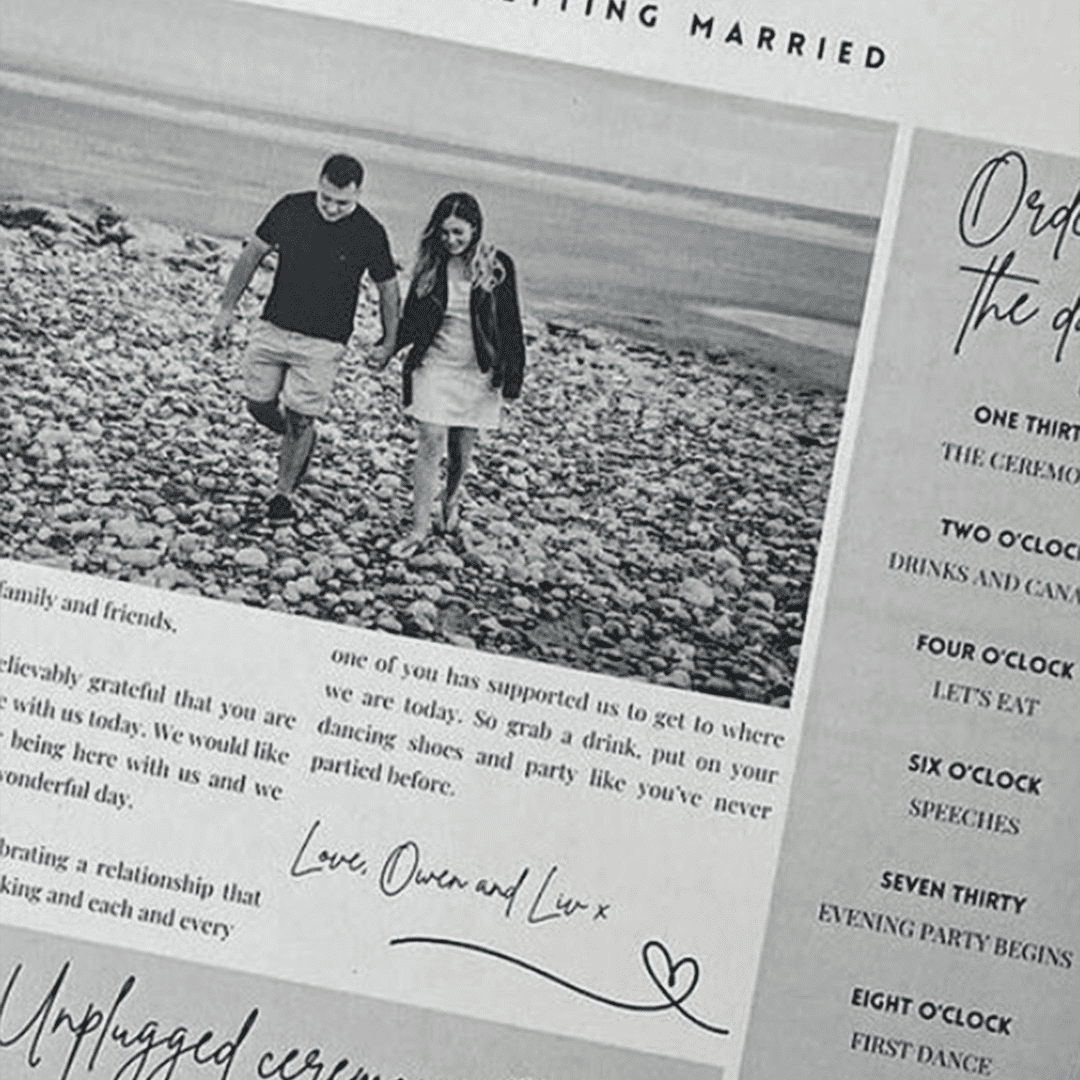 MARRIED
family and friends.
grateful that you are
with us today. We would like
being here with us and we
wonderful day.
a relationship that
and each and every
one of you has supported us to get to where
we are today. So grab a drink, put on your
dancing shoes and party like you've never
partied before.
Love, Owen and Liv x
Unplugged
the
ONE
THE
TWO
DRINKS AND
FOUR O'CLOCK
LET'S EAT
SIX O'CLOCK
SPEECHES
SEVEN THIRTY
EVENING PARTY BEGINS
EIGHT O'CLOCK
FIRST DANCE